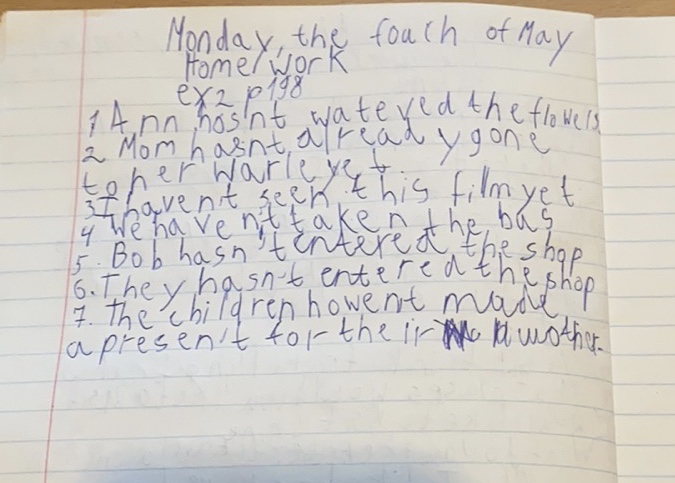 Monday, the fouch of May
Homework
ex2 p198
1 Ann hosn't watered the flowers
2 Mom hasnt already gone
to her warle yet
3 I haven't seen this film yet
4 We haven't taken the bas
5. Bob hasn't entered the shop
6. They hasn't entered the shop
7. The children howent made
a presen't for their mother.